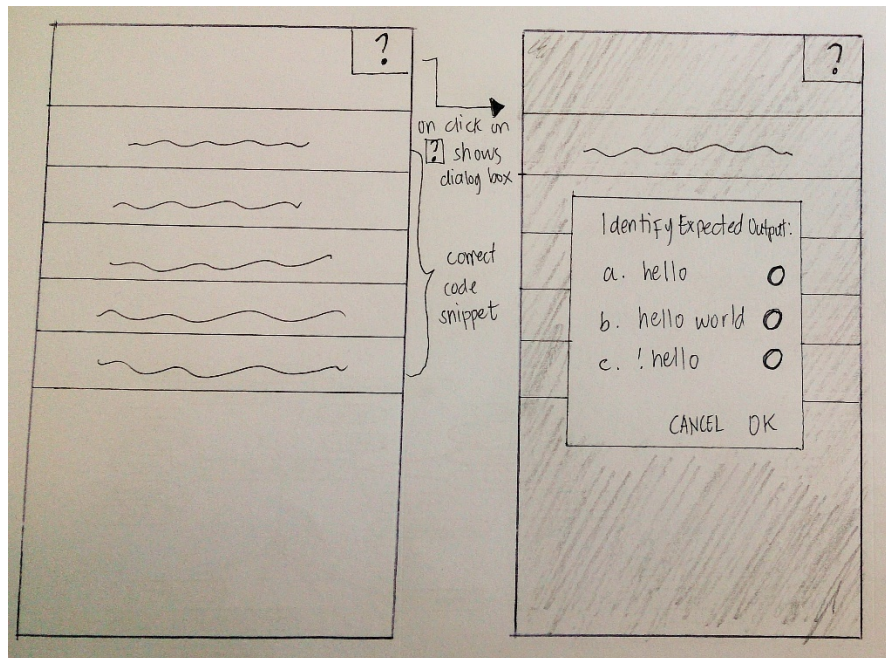 ?
on click on
? shows
dialog box
correct
code
snippet
?
Identify Expected Output:
a. hello
b. hello world
c. ! hello
CANCEL OK